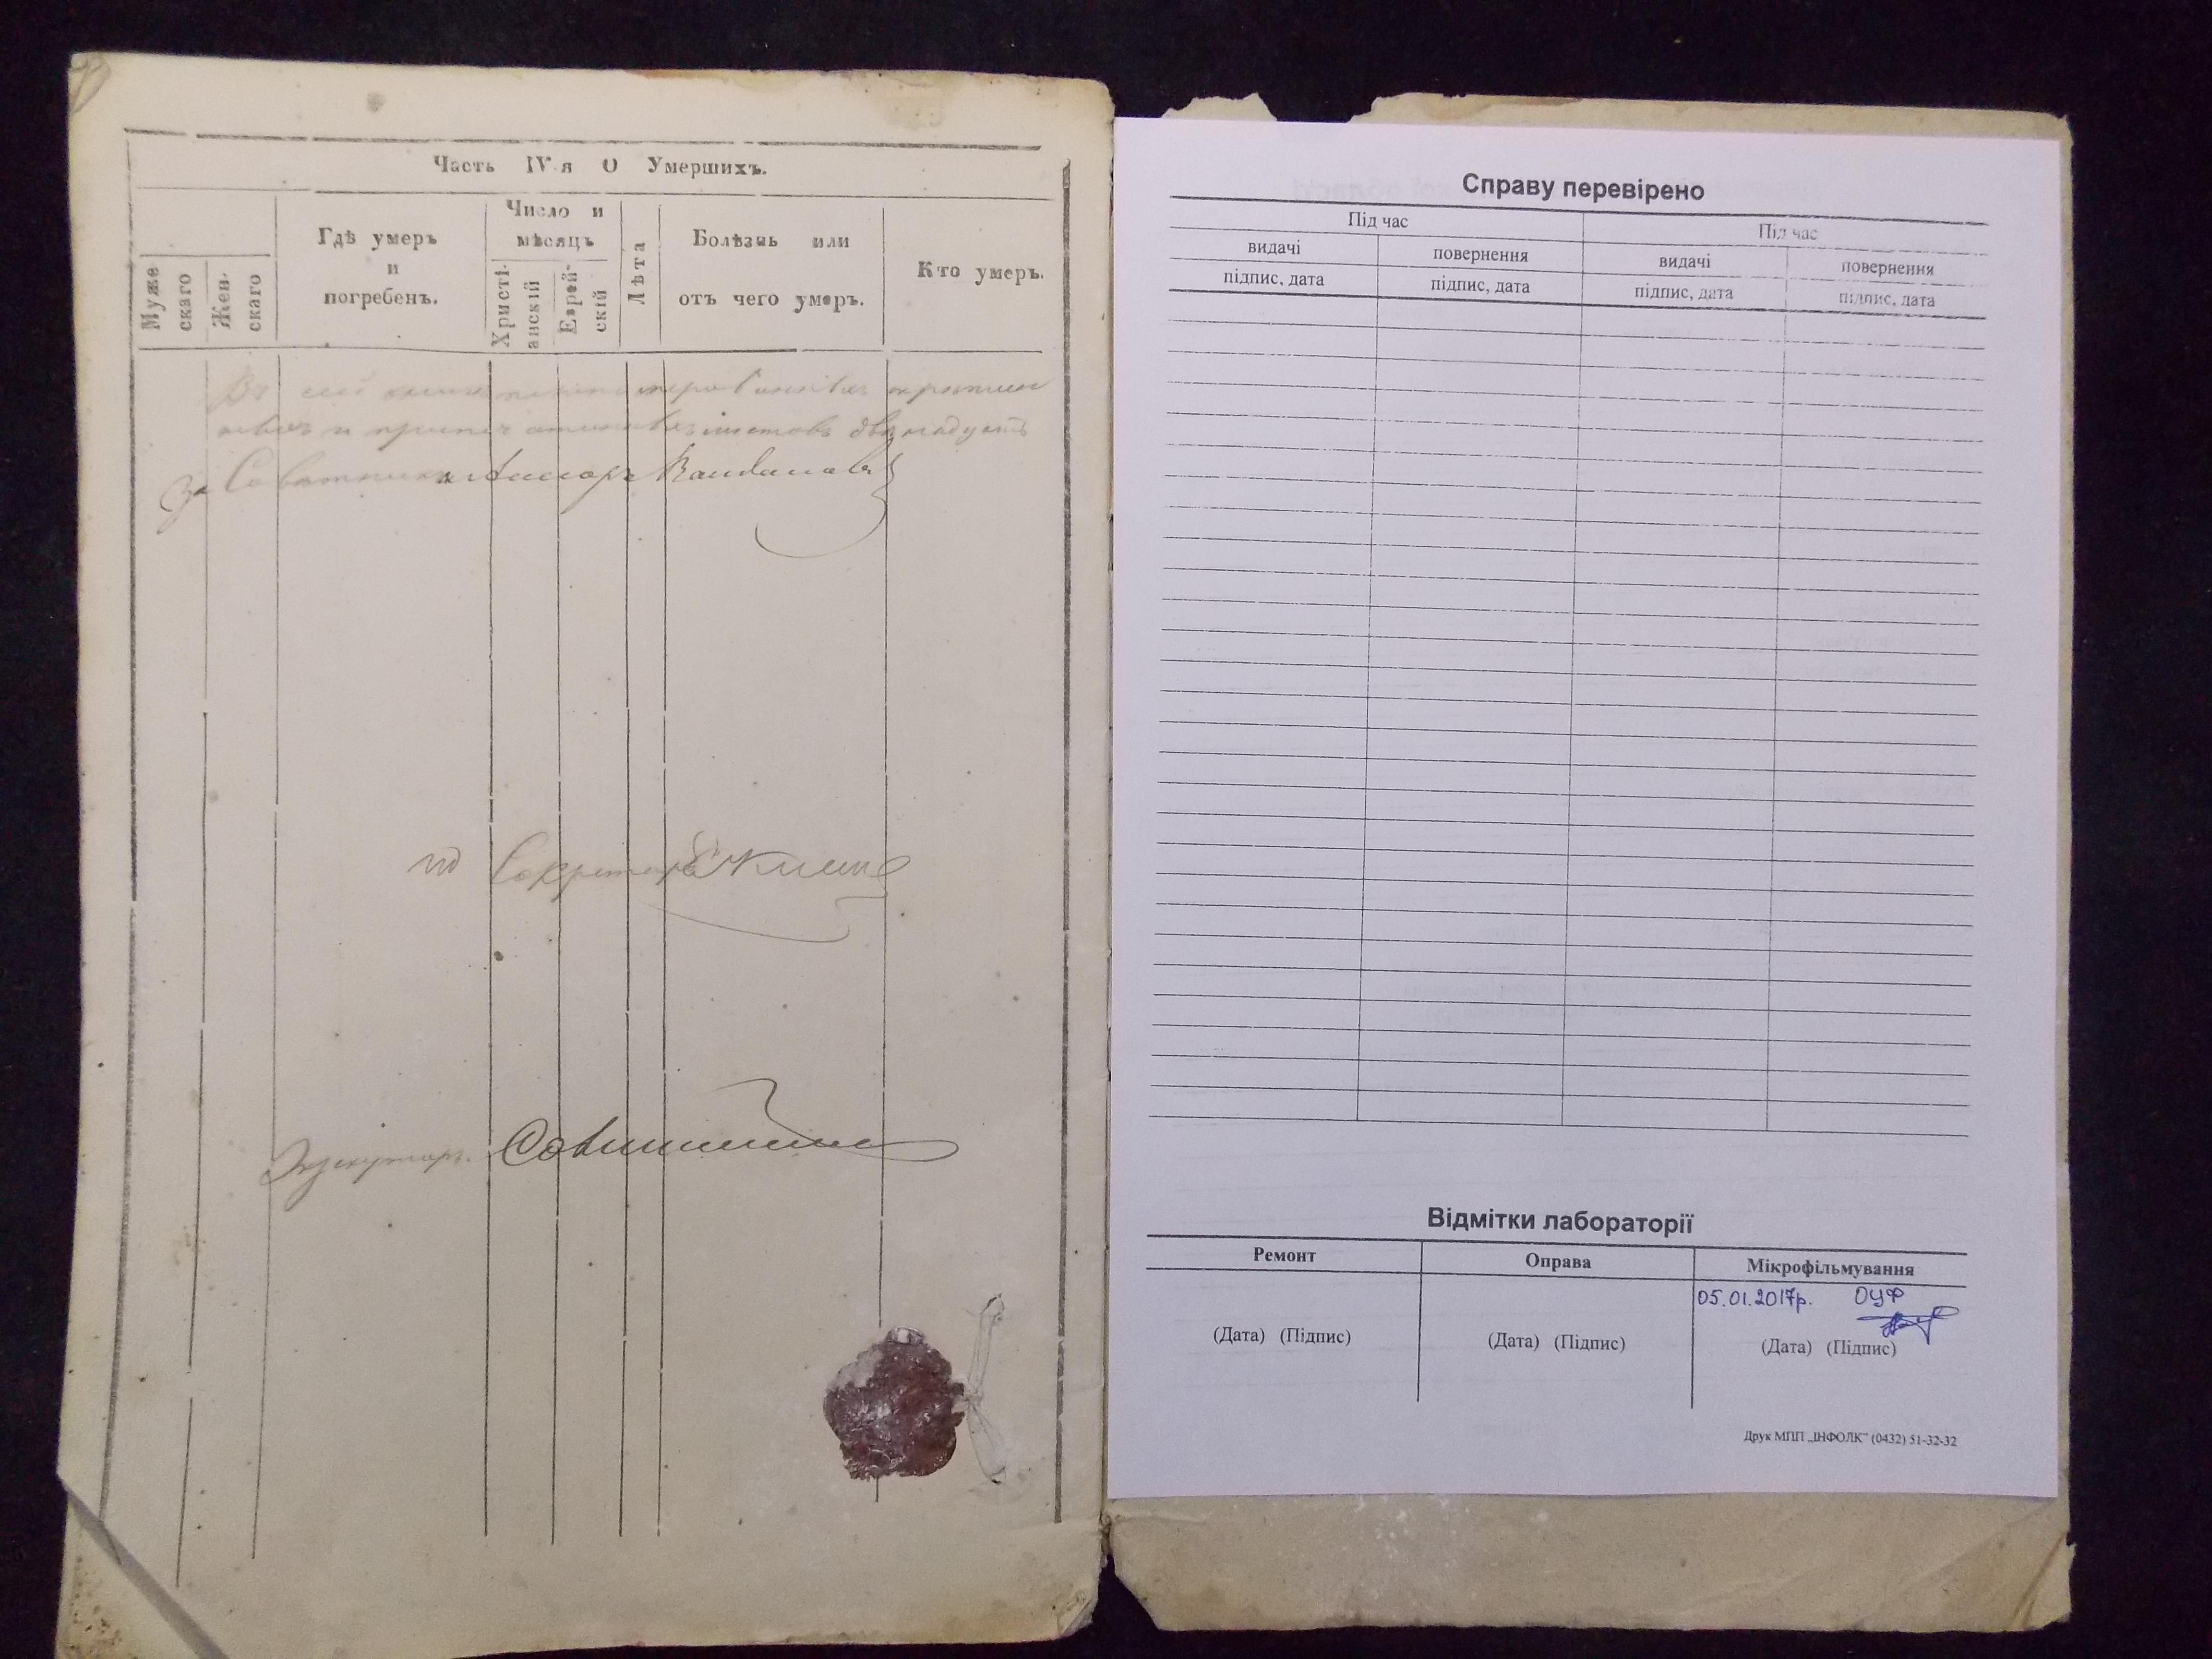 Часть IV-я О Умершихъ.
Муже-
скаго
Жен-
скаго
Гдѣ умеръ
и
погребенъ.
Число и
мѣсяцъ
Христі-
анскій
Еврей-
скій
Лѣта
Болѣзнь или
отъ чего умеръ.
Кто умеръ.
Въ сей
и листовъ двенадцать
За Советника Ассесоръ
Секретарь
Экзекуторъ
Справу перевірено
Під час
Під час
видачі
повернення
видачі
повернення
підпис, дата
підпис, дата
підпис, дата
підпис, дата
Відмітки лабораторії
Ремонт
Оправа
Мікрофільмування
05.01.2017р. ОУФ
(Дата) (Підпис)
(Дата) (Підпис)
(Дата) (Підпис)
Друк МПП „ІНФОЛК" (0432) 51-32-32